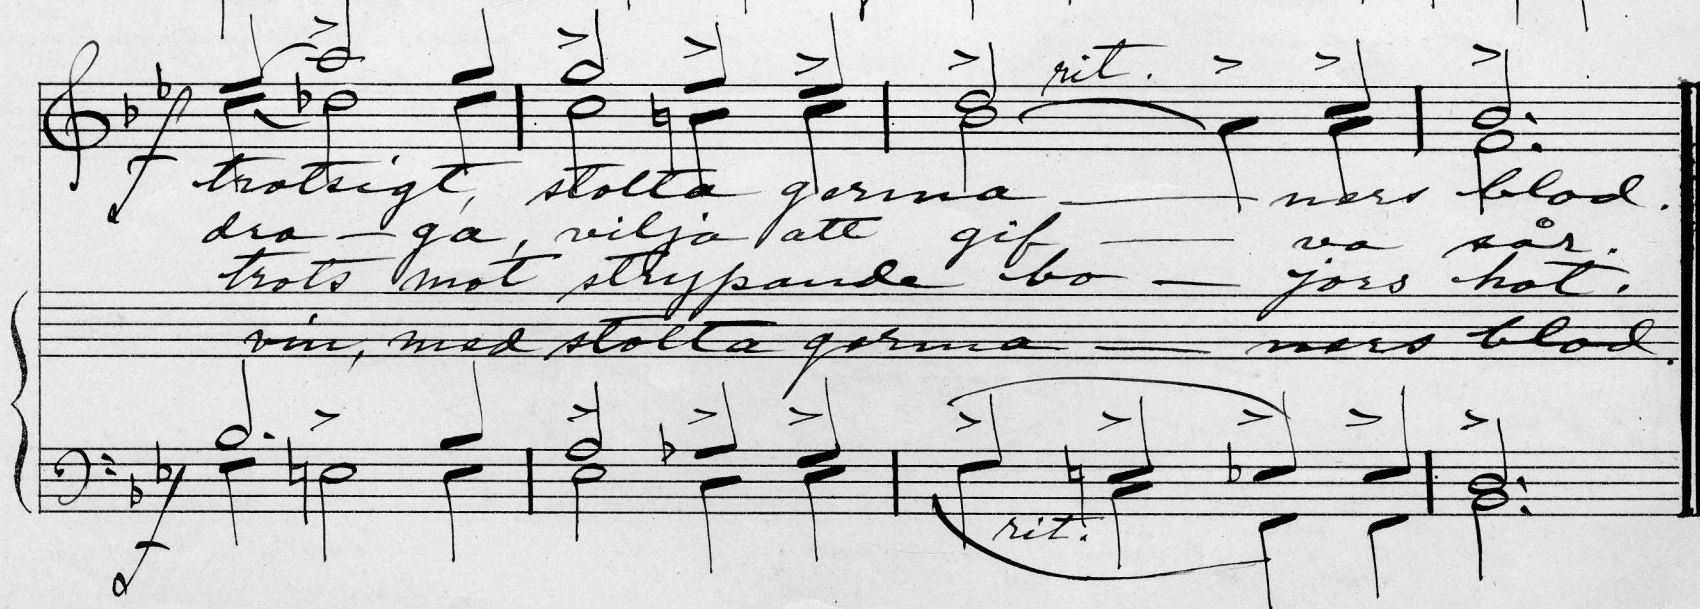 rit.
f
trotsigt, stolta germa — ners blod.
dra – ga, vilja att gif — va sår.
trots mot strypande bo — jors hot.
vin, med stolta germa — ners blod.
f
rit.